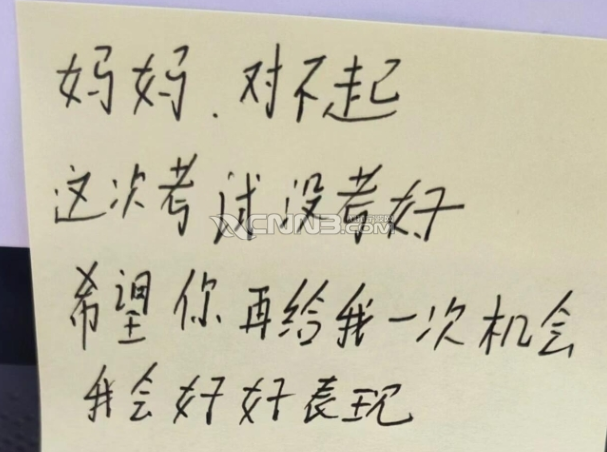 妈妈．对不起
这次考试没考好
希望你再给我一次机会
我会好好表现